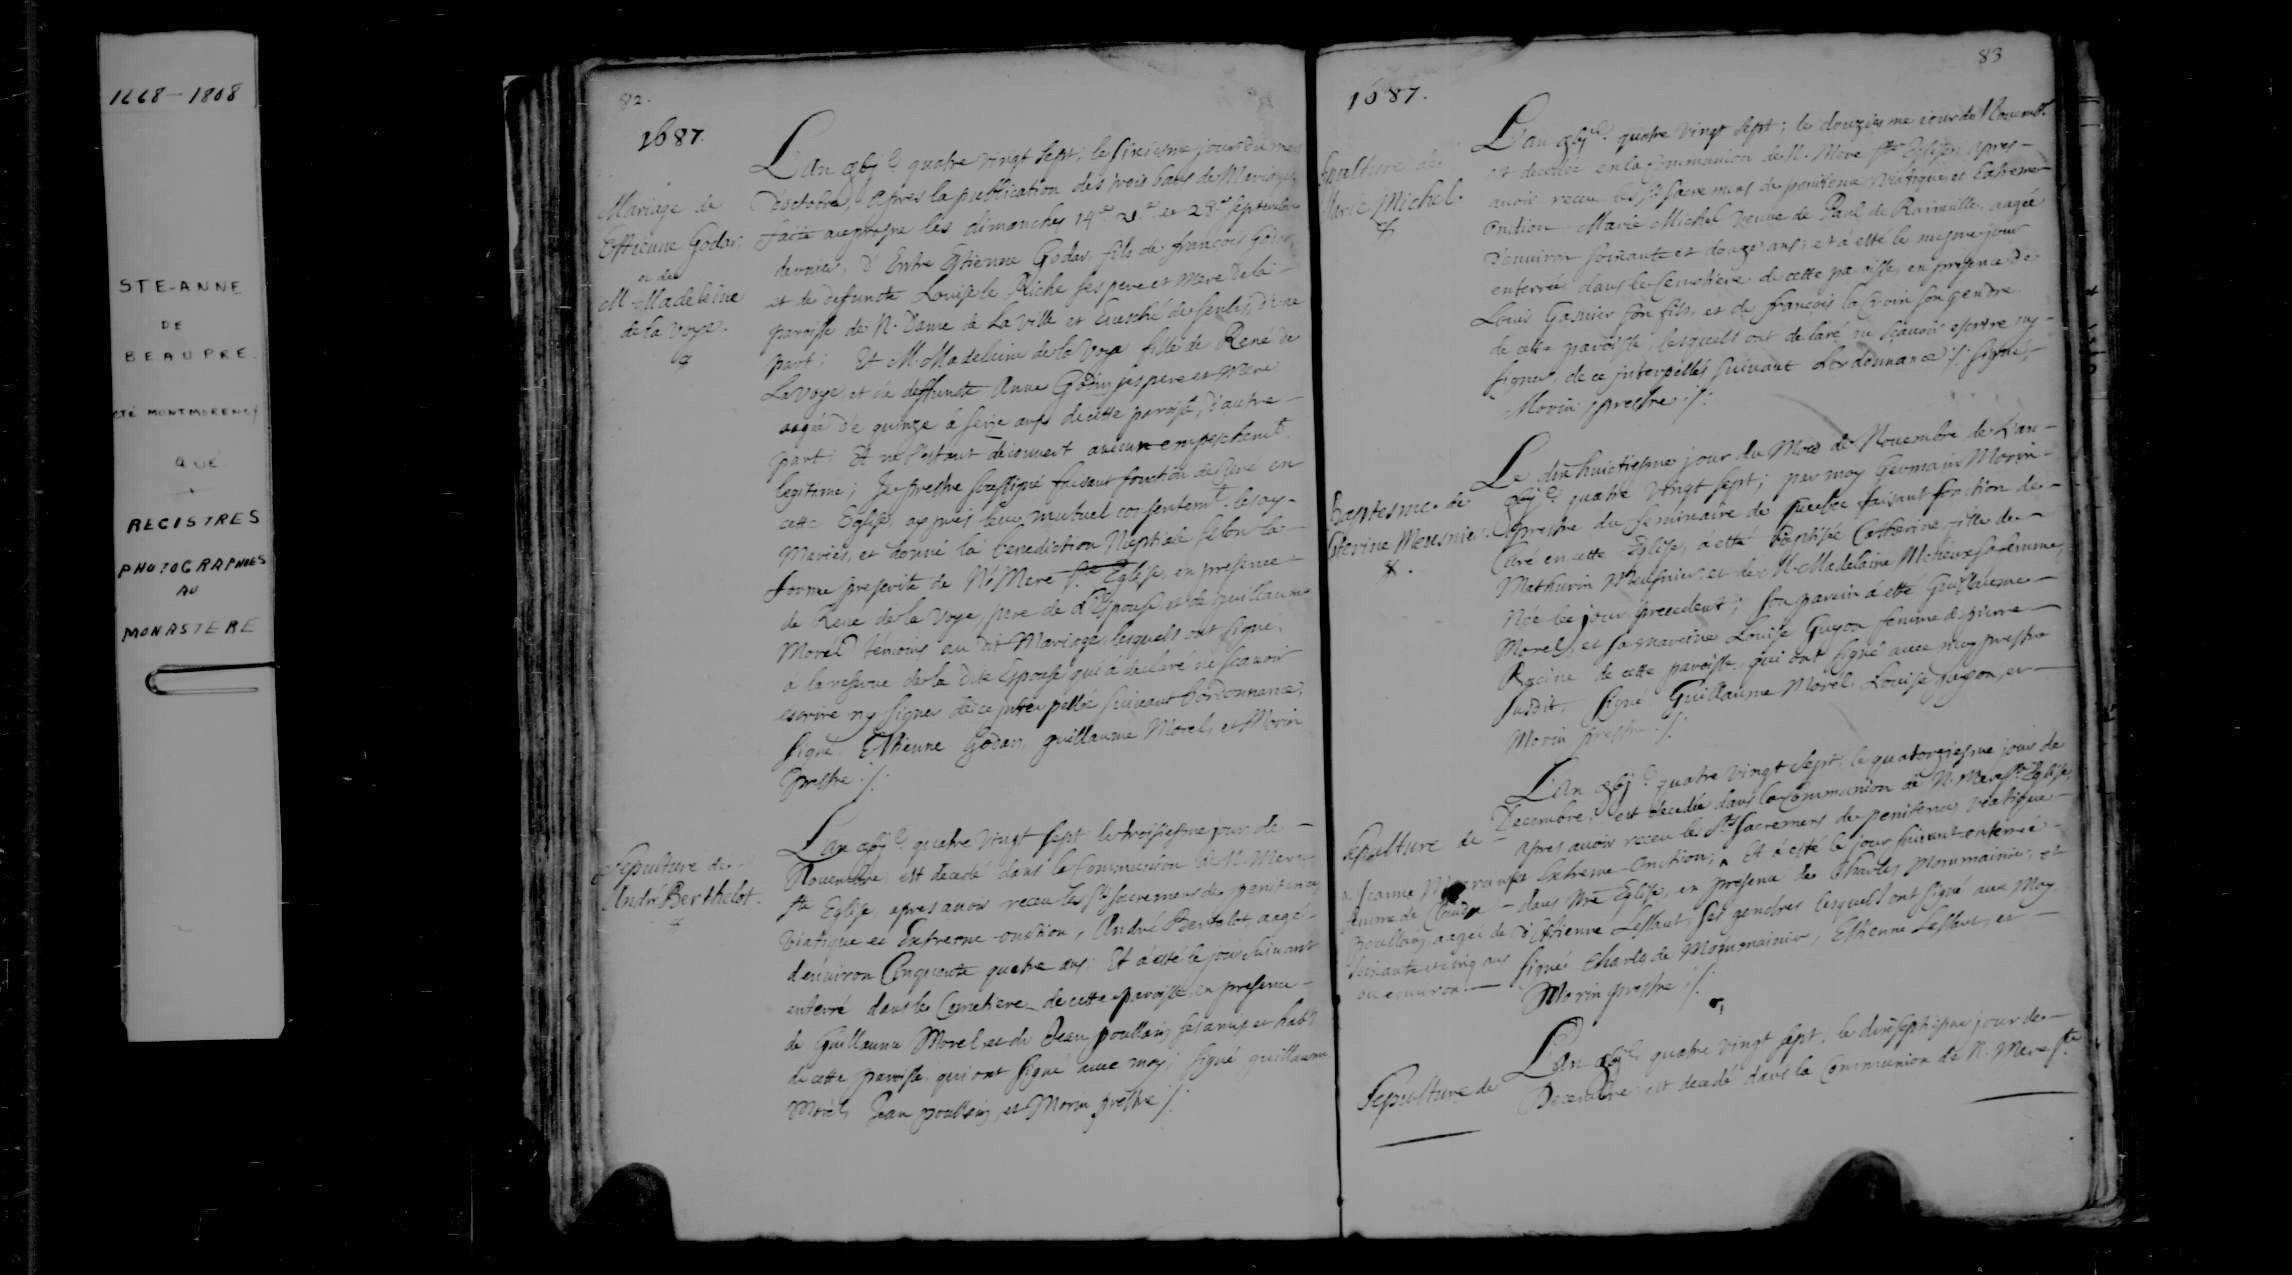 1668-1808
STE-ANNE
DE
BEAUPRE
CTÉ MONTMORENCY
QUÉ
REGISTRES
PHOTOGRAPHIÉS
AU
MONASTERE
82.
1687.
Mariage de
Estienne Godar
et de
M. Madeleine
de la Voye.
L'an gbjc quatre vingt sept; le sixiesme jour du mois
d'octobre, apres la publication des trois bans de Mariage
faite au prosne les dimanches 14e 21e et 28e septembre
dernier, d'Entre Estienne Godar, fils de francois Godar
et de deffuncte Louise le Riche ses pere et mere de la
paroisse de N. Dame de la Ville et Evesché de senlis, d'une
part; Et M. Madeleine de la Voye fille de René de
La Voye et de deffuncte Anne Godin ses pere et mere
aagée de quinze à seize ans de cette paroisse, d'autre
part; Et ne s'estant découvert aucun empeschemt.
legitime; Je prestre soussigné faisant fonction de Curé en
cette Eglise, appris leur mutuel consentemt. les ay
Mariés, et donné la benediction Nuptiale selon la
forme prescrite de N. Mere Ste. Eglise, en presence
de René de la Voye, pere de L'Epouse, et de Guillaume
Morel témoins au dit Mariage, lesquels ont signé,
à la reserve de la dite Epouse qui à declaré ne scavoir
escrire ny signer de ce interpellée suivant l'ordonnance;
signé, Estienne Godar, guillaume Morel, et Morin
prestre ./.
Sepulture de
André Berthelot.
L'an gbjc quatre vingt sept le troisiesme jour de
Novembre est decedé dans la Communion de N. Mere
Ste Eglise, apres avoir receu les Sts sacremens de penitence,
Viatique et Extreme-onction, André Bertelot, aagé
d'environ Cinquante quatre ans; Et à esté le jour suivant
enterré dans le Cemetiere de cette paroisse, en presence
de Guillaume Morel et de Jean poullain, ses amis et habts
de cette paroisse qui ont signé avec moy, signé guillaume
Morel, Jean poullain, et Morin prestre ./.
83
1687.
Sepulture de
Marie Michel.
L'an gbjc. quatre vingt sept; le douziesme jour de Novembre
est decedée en la Communion de N. Mere Ste Eglise, apres
avoir receu les Sts sacremens de penitence Viatique et Extreme
Onction Marie Michel veuve de Paul de Rainville, aagée
d'environ soixante et douze ans; et à esté le mesme jour
enterrée dans le Cemetiere de cette paroisse, en presence de
Louis Gasnier son fils, et de francois la son gendre
de cette paroisse, lesquels ont declaré ne scavoir escrire ny
signer, de ce interpellés suivant L'ordonnance ./. signé,
Morin prestre ./.
Baptesme de
Caterine Meusnier.
Le dix huictiesme jour du Mois de Novembre de L'an
gbjc quatre vingt sept; par moy Germain Morin
prestre du seminaire de quebec faisant fonction de
Curé en cette Eglise, a esté baptisée Catherine fille de
Mathurin Meusnier et de M. Madelaine Meheux sa femme,
Née le jour precedent; son parein à esté Guillaume
Morel, et sa mareine Louise Guyon femme de pierre
Racine de cette paroisse, qui ont signé avec moy prestre
susdit, signé Guillaume Morel, Louise guyon, et
Morin prestre ./.
Sepulture de
Jeanne
femme de Claude
poullain, aagée de
soixante et cinq ans
ou environ.
L'an gbjc quatre vingt sept, le quatorziesme jour de
Decembre, est decedée dans la Communion de N. Mere Ste Eglise,
apres avoir receu les Sts sacremens de penitence, viatique
Extreme-Onction, Et à esté le jour suivant enterrée
dans Nre Eglise, en presence de Charles Mommainier, et
d'Estienne Lessart, ses gendres lesquels ont signé avec Moy,
signé Charles de Mommainier, Estienne Lessart, et
Morin prestre ./.
Sepulture de
L'an gbjc quatre vingt sept, le dixseptiesme jour de
Decembre, est decedé dans la Communion de N. Mere Ste